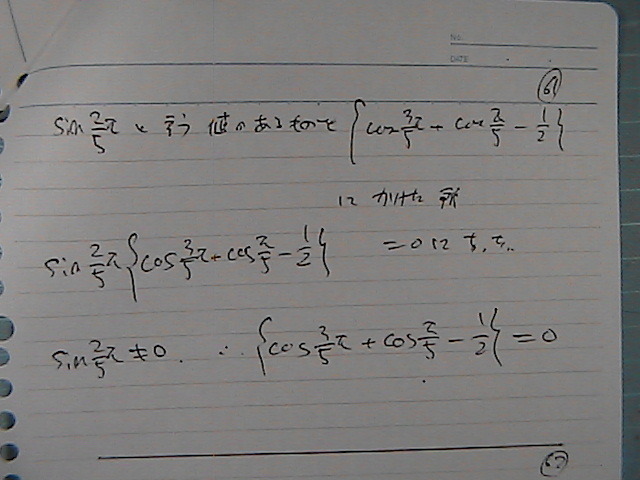 No.
DATE
61
sin 2/5 π と言う 値のあるものを {cos 3/5 π + cos π/5 - 1/2}
にかけた所
sin 2/5 π {cos 3/5 π + cos π/5 - 1/2} = 0に
sin 2/5 π ≠ 0. ∴ {cos 3/5 π + cos π/5 - 1/2} = 0